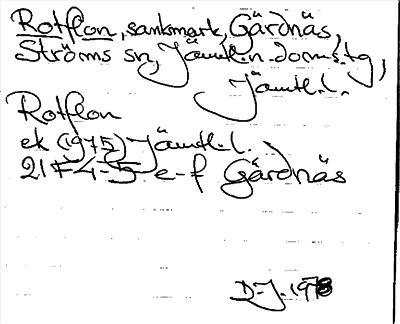 Rotflon, sankmark, Gärdnäs,
Ströms sn, Jämtl.n. doms.tg,
Jämtl.l.
Rotflon
ek (1975) Jämtl.l.
21F4-5 e-f Gärdnäs
D-J. 1978